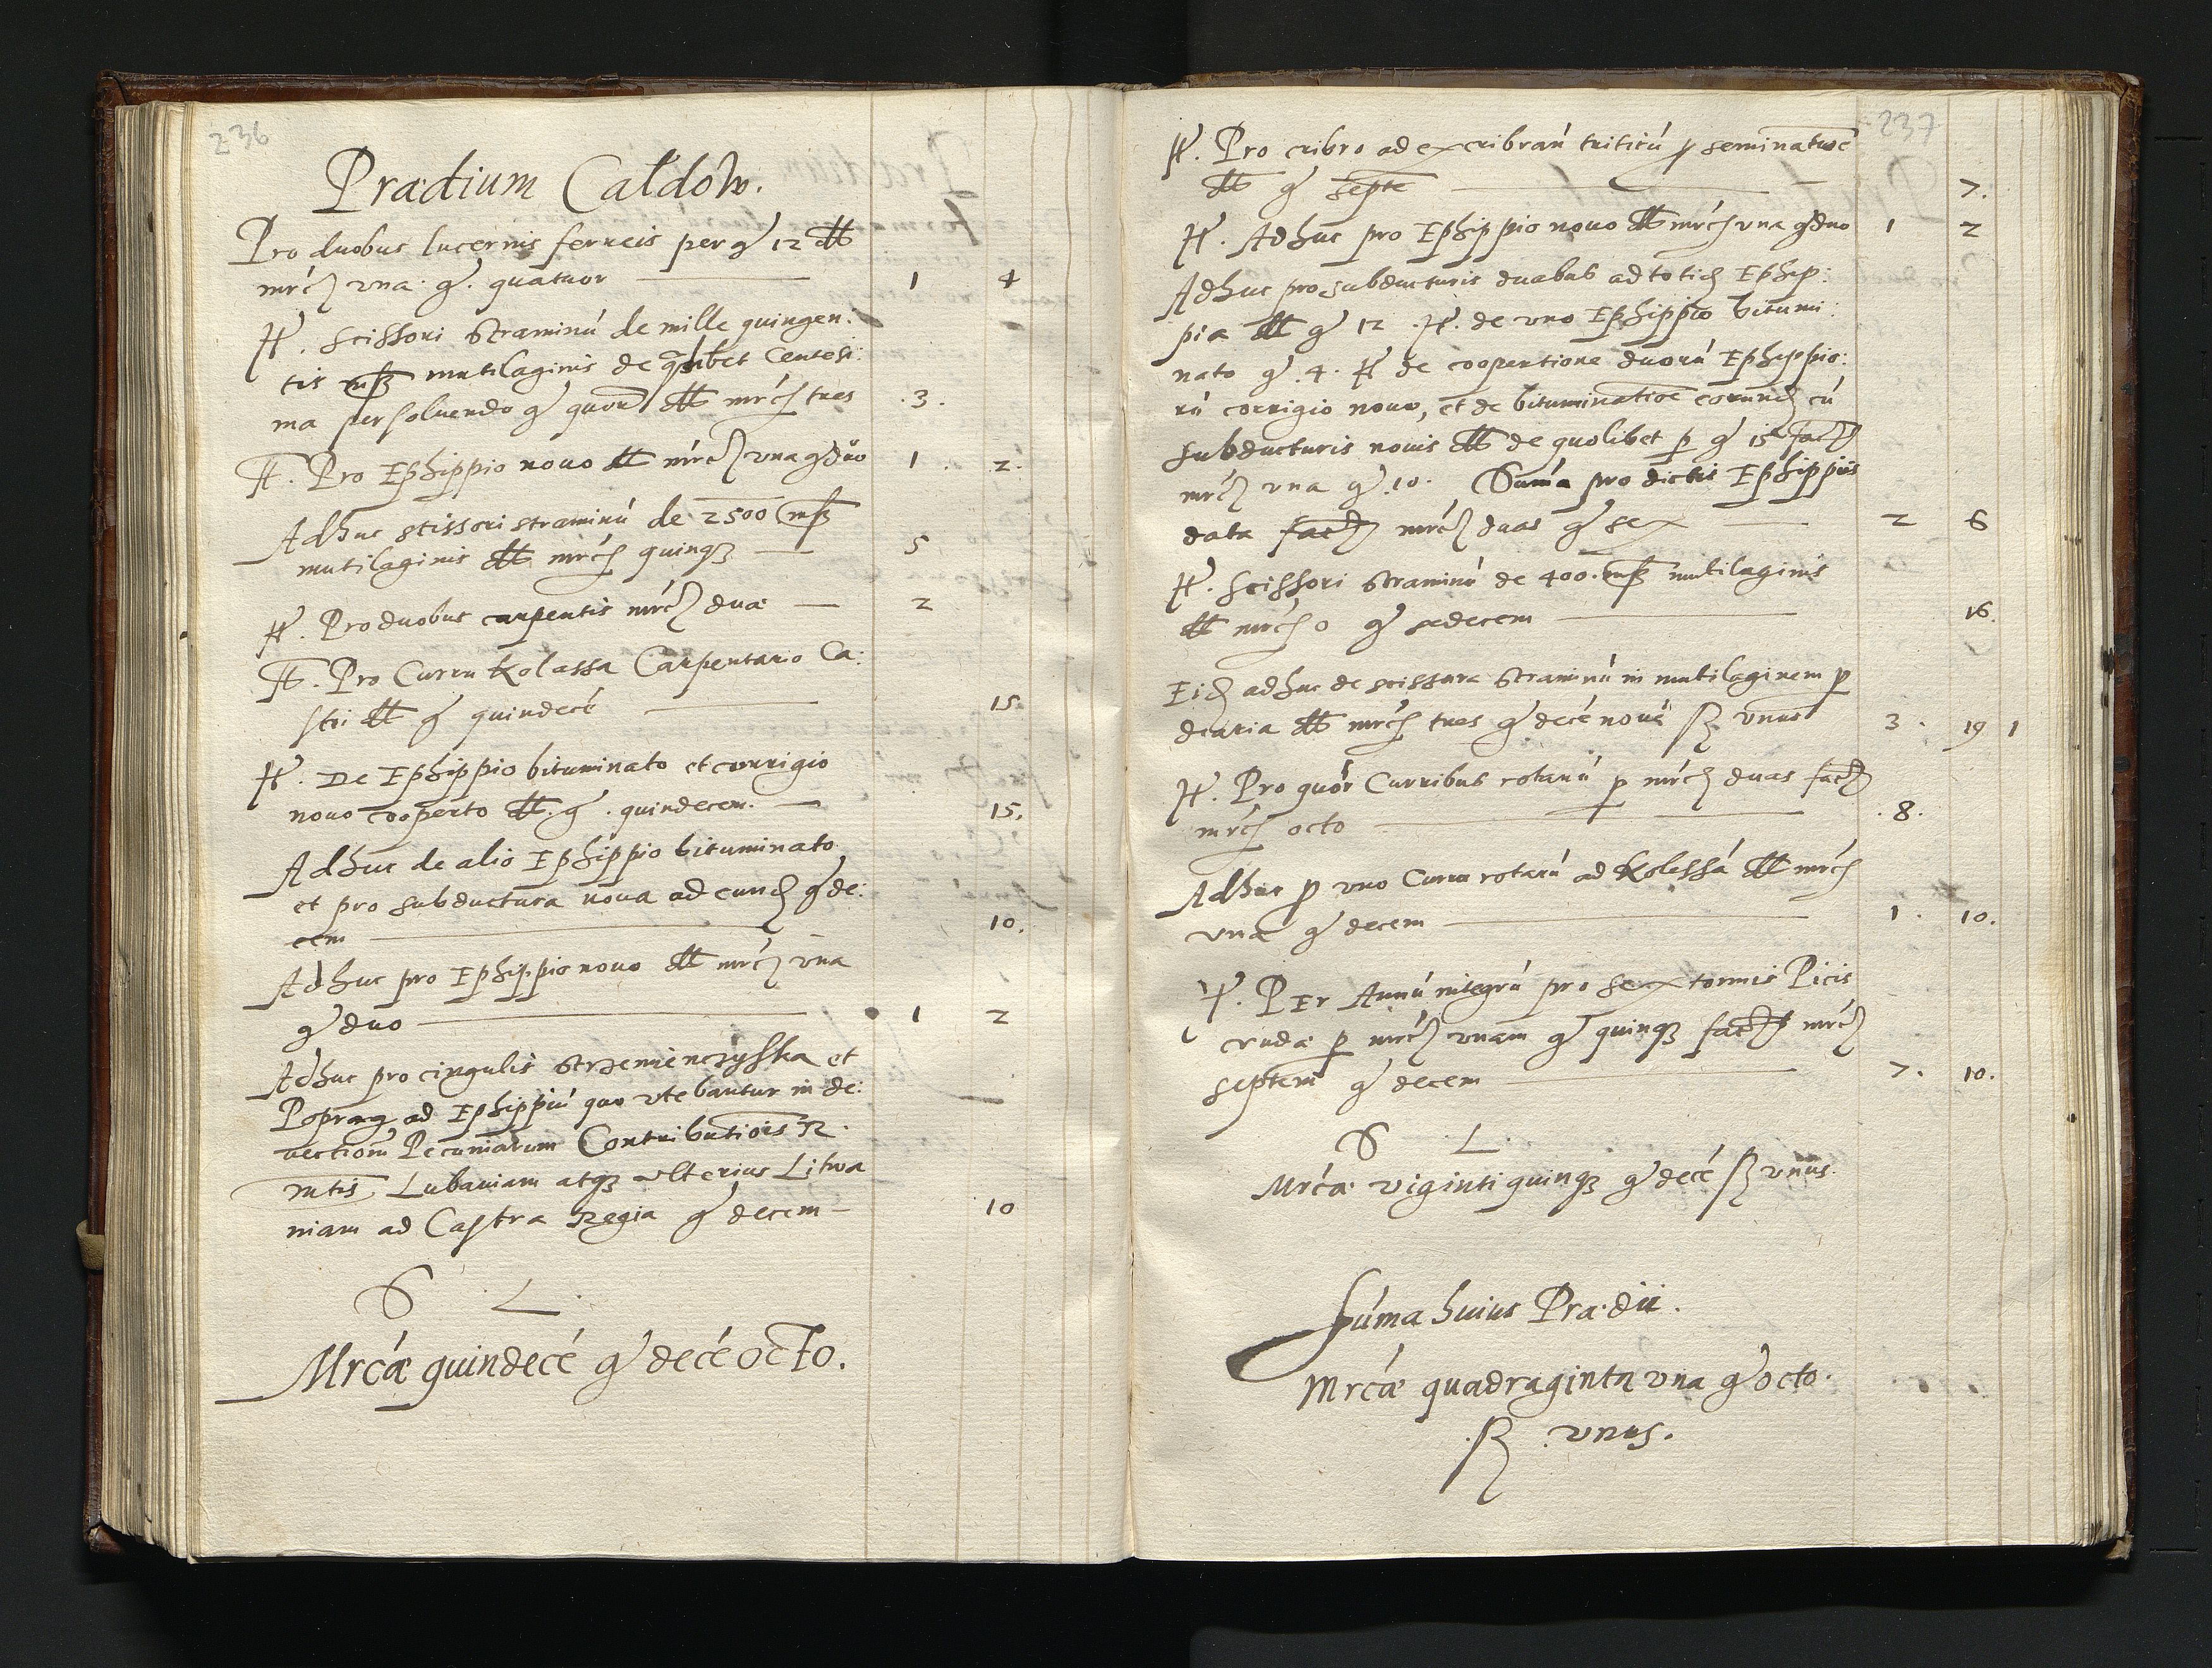 236
Prædium Caldow.
Pro duobus lucernis ferreis per gr 12 dtt
mrcȩ una gr. quatuor 1 4
It. scissori straminú de mille quingen:
tis mutilaginis de qlibet Centesi:
ma persoluendo gr quor dtt mrcȩ tres .3.
It. Pro Ephippio nouo dtt mrcȩ una gr duo 1. 2.
Adhuc scissori straminú de 2500
mutilaginis dtt mrcȩ quinqȝ 5
It. Pro duobus carpentis mrcȩ duæ 2
It. Pro Curru Kolassa Carpentario Ca:
stri dtt gr quindecé 15.
It. De Ephippio bituminato et corrigio
nouo cooperto dtt. gr. quindecem. 15.
Adhuc de alio Ephippio bituminato
et pro subductura noua ad eund gr de:
cem 10.
Adhuc pro Ephippio nouo dtt mrcȩ una
gr duo 1 2
Adhuc pro cingulis Strzemienczyska et
Poprag ad Ephippiú quo utebantur in de:
uectione Pecuniarum Contributiois R.
mtis Lubauiam atqȝ ulterius Litua
niam ad Castra Regia gr decem 10
S L.
Mrcæ quindecé gr decé octo.
237
It. Pro cribro ad excribranú triticú p seminatioe
dtt gr septe 7.
It. Adhuc pro Ephippio nouo dtt mrcȩ una gr duo 1 2
Adhuc pro subducturis duabus ad totid Ephip:
pia dtt gr 12. It. de uno Ephippio bitumi:
nato gr .4. It de coopertione duorú Ephippio:
rú corrigio nouo, et de bituminatioe eorund cú
subducturis nouis dtt de quolibet p gr 15 fact
mrcȩ una gr .10. Suma pro dictis Ephippiis
data fact mrcȩ duas gr sex 2 6
It. Scissori Straminú de 400. mutilaginis
dtt mrcȩ 0 gr sedecem 16.
Eid adhuc de scissura Straminú in mutilaginem p
diaria dtt mrcȩ tres gr decé noué ß unus 3. 19 1
It. Pro quor Curribus rotarú p mrcȩ duas fact
mrcȩ octo .8.
Adhuc p uno Curru rotarú ad Kolessá dtt mrcȩ
una gr decem 1. 10.
It. Per Annú integrú pro sex tormis Picis
crudæ p mrcȩ unam gr quinqȝ fact mrcȩ
septem gr decem 7. 10.
S L.
Mrcæ viginti quinqȝ gr decé ß unus.
Suma huius Prædii.
Mrcæ quadraginta una gr octo.
ß. unus.